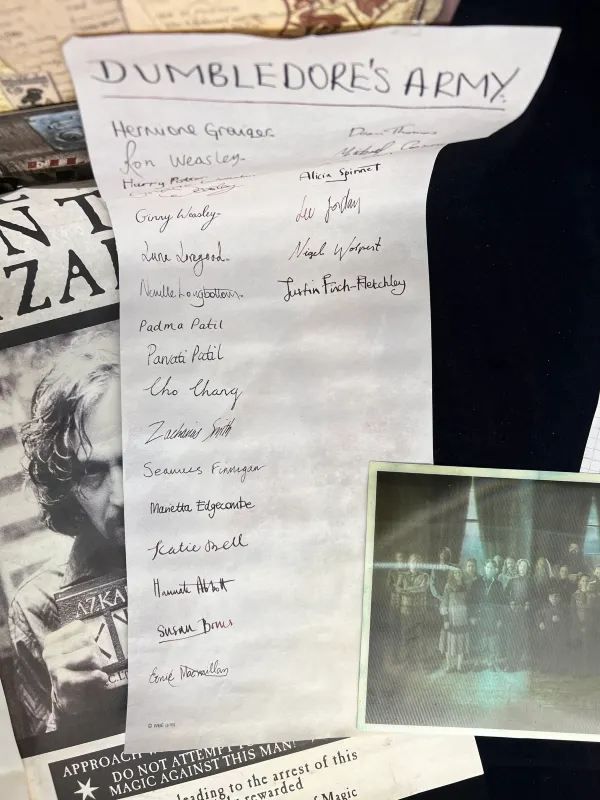 DUMBLEDORE'S ARMY
Hermione Granger
Ron Weasley
Harry Potter
Ginny Weasley
Luna Lovegood
Neville Longbottom
Padma Patil
Parvati Patil
Cho Chang
Zacharias Smith
Seamus Finnigan
Marietta Edgecombe
Katie Bell
Hannah Abbott
Susan Bones
Ernie Macmillan
Dean Thomas
Michael
Alicia Spinnet
Lee Jordan
Nigel Wolpert
Justin Finch-Fletchley
NT
ZA
AZKA
APPROACH
DO NOT ATTEMPT
MAGIC AGAINST THIS MAN!
leading to the arrest of this
rewarded
of Magic